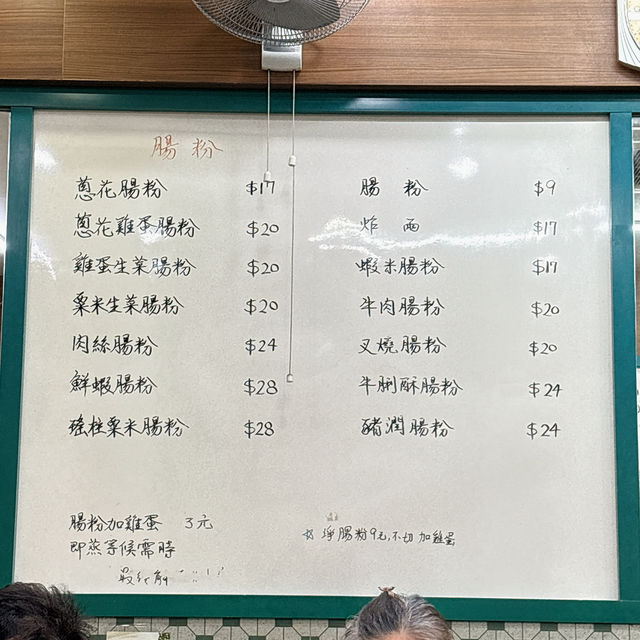 腸粉
蔥花腸粉 $17
蔥花雞蛋腸粉 $20
雞蛋生菜腸粉 $20
粟米生菜腸粉 $20
肉絲腸粉 $24
鮮蝦腸粉 $28
瑤柱粟米腸粉 $28
腸 粉 $9
炸 両 $17
蝦米腸粉 $17
牛肉腸粉 $20
叉燒腸粉 $20
牛脷酥腸粉 $24
豬潤腸粉 $24
腸粉加雞蛋 3元
即蒸等候需時
☆ 淨腸粉9元,不切 加雞蛋